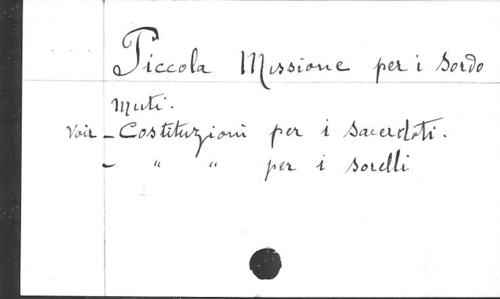 Piccola Missione per i Sordo
Muti.
Voir - Costituzioni per i sacerdoti.
- " " per i sorelli